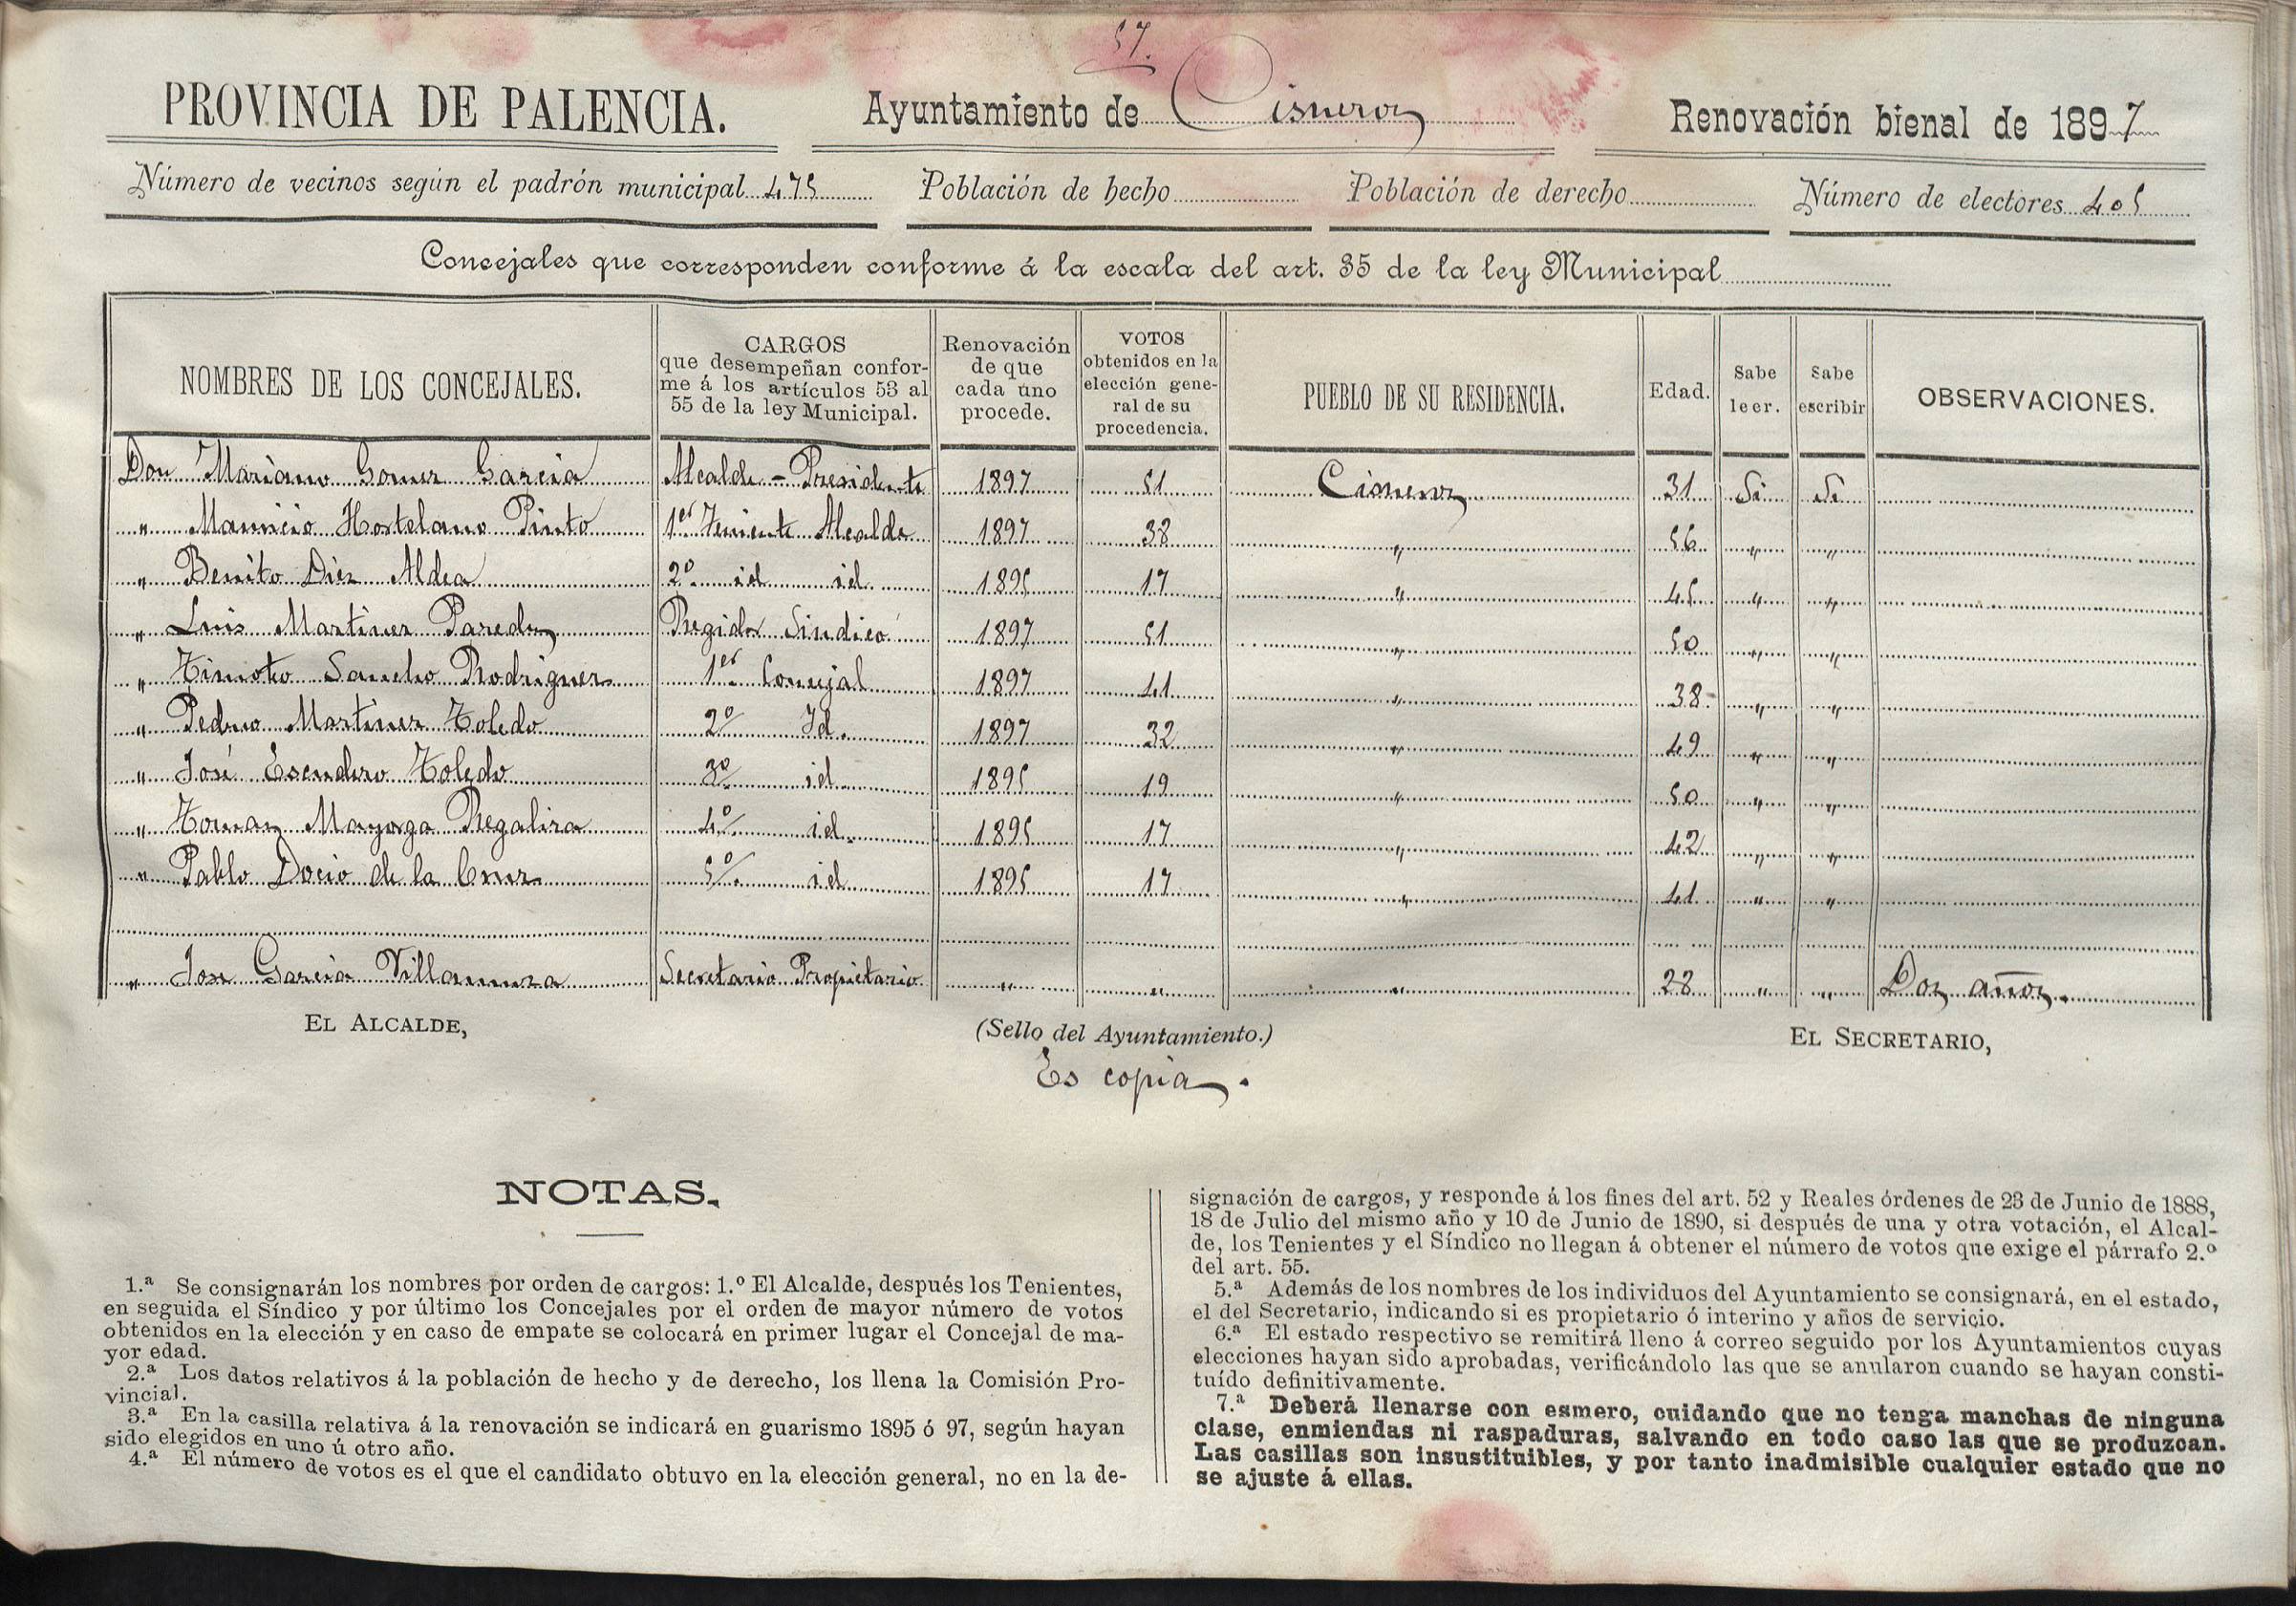 57.
PROVINCIA DE PALENCIA. Ayuntamiento de Cisneros Renovación bienal de 1897
Número de vecinos según el padrón municipal 475 Población de hecho Población de derecho Número de electores 405
Concejales que corresponden conforme á la escala del art. 35 de la ley Municipal
NOMBRES DE LOS CONCEJALES. CARGOS que desempeñan conforme á los artículos 53 al 55 de la ley Municipal. Renovación de que cada uno procede. VOTOS obtenidos en la elección general de su procedencia. PUEBLO DE SU RESIDENCIA. Edad. Sabe leer. Sabe escribir OBSERVACIONES.
Don Mariano Gomez Garcia Alcalde - Presidente 1897 51 Cisneros 31 Si Si
" Mauricio Hortelano Pinto 1er Teniente Alcalde 1897 38 " 56 " "
" Benito Diez Aldea 2º id id. 1895 17 " 45 " "
" Luis Martinez Paredes Regidor Sindico 1897 51 " 50 " "
" Timoteo Sancho Rodriguez 1er Concejal 1897 41 " 38 " "
" Pedro Martinez Toledo 2º Id. 1897 32 " 49 " "
" José Escudero Toledo 3º id. 1895 19 " 50 " "
" Tomas Mayorga Regaliza 4º id. 1895 17 " 42 " "
" Pablo Docio de la Cruz 5º id 1895 17 " 41 " "
" Jose Garcia Villamuza Secretario Propietario " " " 28 " " Dos años.
EL ALCALDE, (Sello del Ayuntamiento.) EL SECRETARIO,
Es copia.
NOTAS.
1.ª Se consignarán los nombres por orden de cargos: 1.º El Alcalde, después los Tenientes,
en seguida el Síndico y por último los Concejales por el orden de mayor número de votos
obtenidos en la elección y en caso de empate se colocará en primer lugar el Concejal de ma-
yor edad.
2.ª Los datos relativos á la población de hecho y de derecho, los llena la Comisión Pro-
vincial.
3.ª En la casilla relativa á la renovación se indicará en guarismo 1895 ó 97, según hayan
sido elegidos en uno ú otro año.
4.ª El número de votos es el que el candidato obtuvo en la elección general, no en la de-
signación de cargos, y responde á los fines del art. 52 y Reales órdenes de 23 de Junio de 1888,
18 de Julio del mismo año y 10 de Junio de 1890, si después de una y otra votación, el Alcal-
de, los Tenientes y el Síndico no llegan á obtener el número de votos que exige el párrafo 2.º
del art. 55.
5.ª Además de los nombres de los individuos del Ayuntamiento se consignará, en el estado,
el del Secretario, indicando si es propietario ó interino y años de servicio.
6.ª El estado respectivo se remitirá lleno á correo seguido por los Ayuntamientos cuyas
elecciones hayan sido aprobadas, verificándolo las que se anularon cuando se hayan consti-
tuído definitivamente.
7.ª Deberá llenarse con esmero, cuidando que no tenga manchas de ninguna
clase, enmiendas ni raspaduras, salvando en todo caso las que se produzcan.
Las casillas son insustituibles, y por tanto inadmisible cualquier estado que no
se ajuste á ellas.